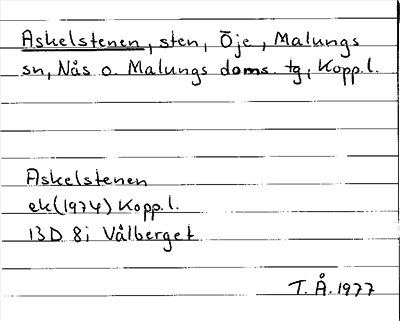 Askelstenen, sten, Öje, Malungs
sn, Nås o. Malungs doms. tg, Kopp.l.
Askelstenen
ek(1974) Kopp.l.
13D 8i Vålberget
T.Å.1977